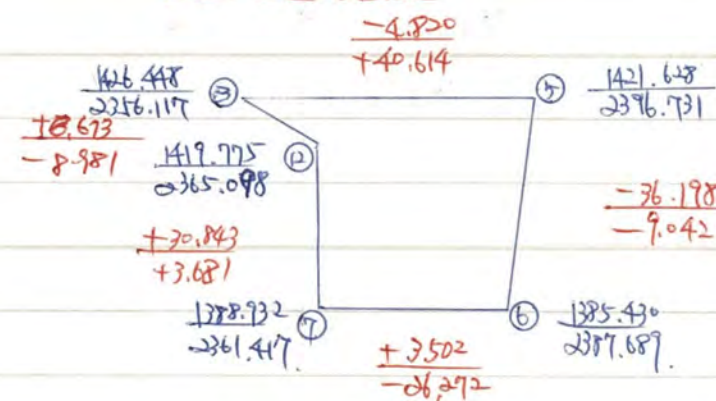 -4.820
+40.614
1426.448
2356.117
③
⑤
1421.628
2396.731
-8.981
1419.775
2365.098
⑫
-36.198
-9.042
+30.843
+3.681
1388.932
2361.417.
⑦
⑥
1385.430
2387.689.
+3.502
-26.272